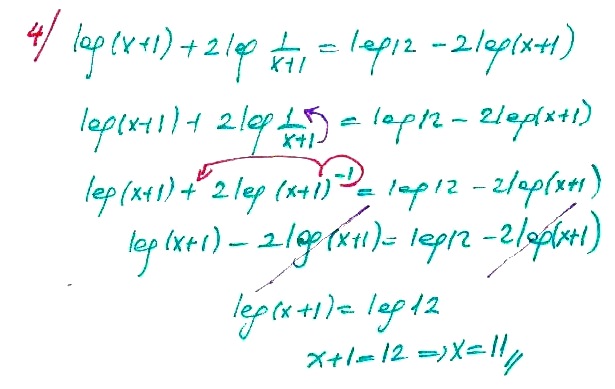 4/ log(x+1) + 2log 1/(x+1) = log12 - 2log(x+1)
log(x+1) + 2log 1/(x+1) = log12 - 2log(x+1)
log(x+1) + 2log(x+1)^-1 = log12 - 2log(x+1)
log(x+1) - 2log(x+1) = log12 - 2log(x+1)
log(x+1) = log12
x+1=12 => x=11,,